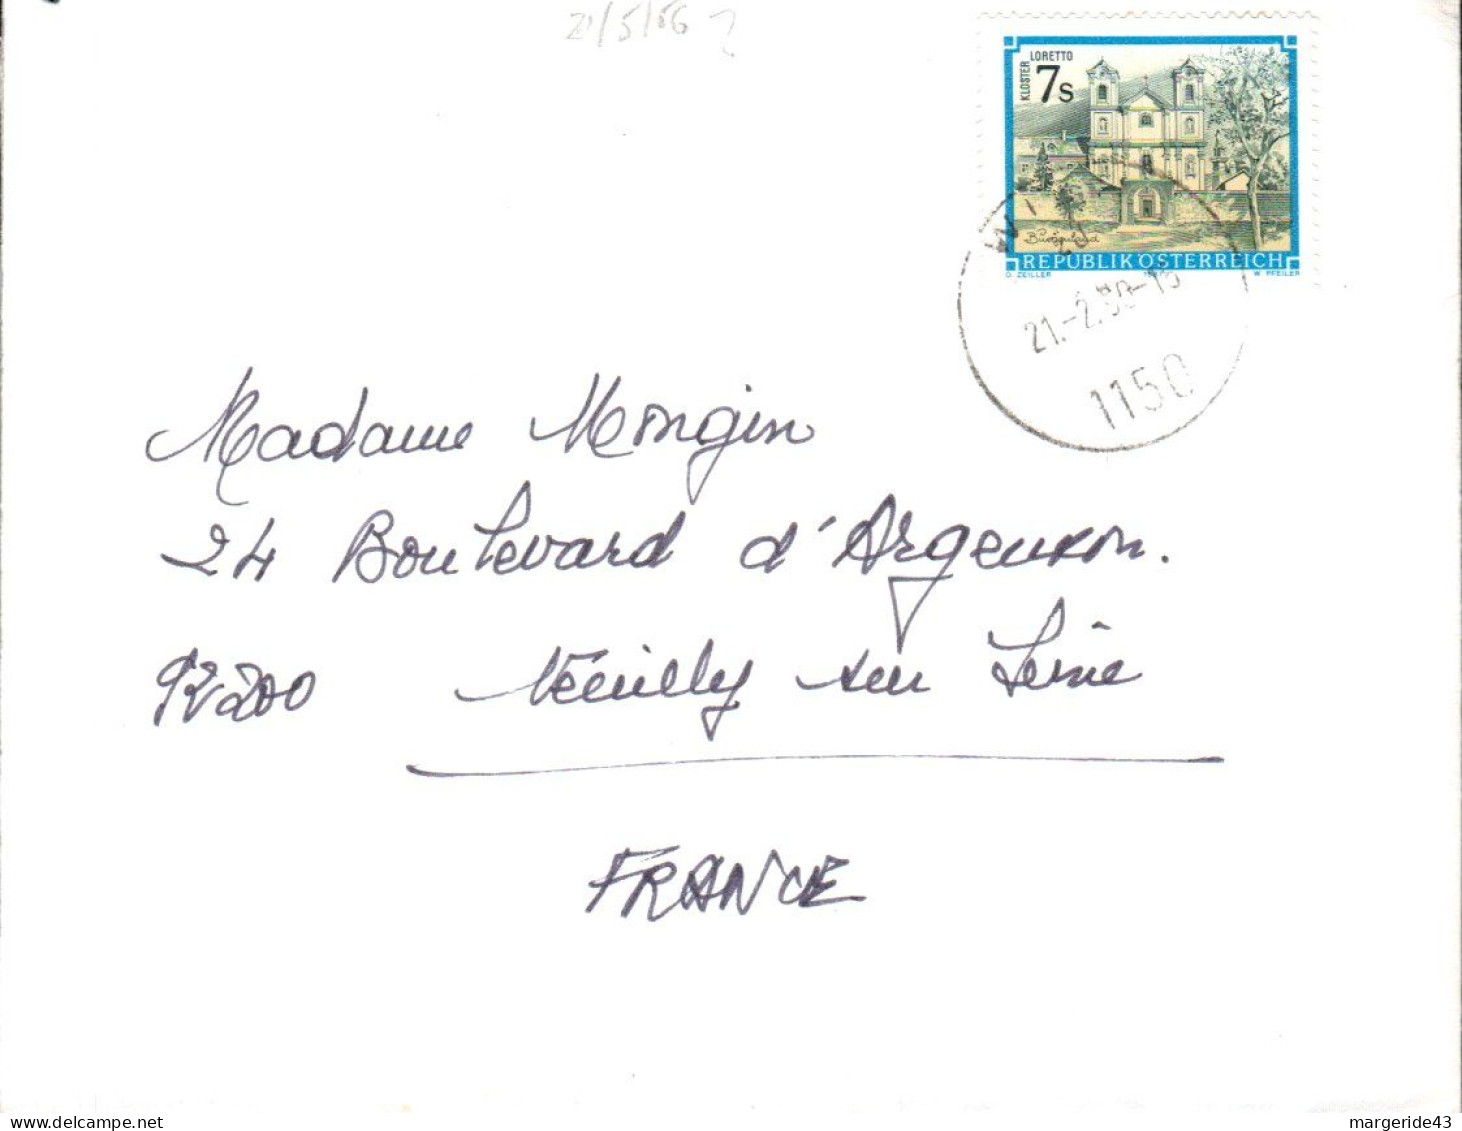 21/5/86 ?
KLOSTER LORETTO
7s
Burgenland
REPUBLIK ÖSTERREICH
D. ZEILLER W. PFEILER
21.-2.90-15
1150
Madame Mongin
24 Boulevard d'Argenson.
92200 Neuilly sur Seine
FRANCE
www.delcampe.net margeride43